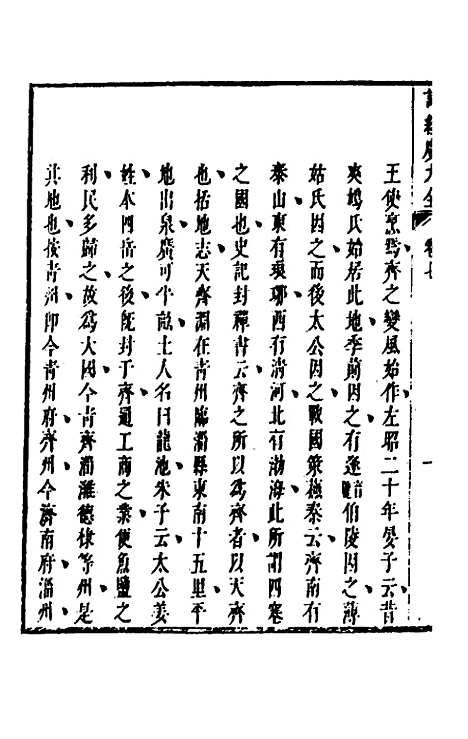 詩經廣大全 卷七 一
王使烹焉齊之變風始作左昭二十年晏子云昔
爽鳩氏始居此地季萴因之有逢伯陵因之薄
姑氏因之而後太公因之戰國策蘇秦云齊南有
泰山東有琅琊西有清河北有渤海此所謂四塞
之國也史記封禪書云齊之所以為齊者以天齊
也括地志天齊淵在青州臨淄縣東南十五里平
地出泉廣可半畝土人名曰龍池朱子云太公姜
姓本四岳之後既封于齊通工商之業便魚鹽之
利民多歸之故為大國今青齊淄濰德棣等州是
其地也按青州即今青州府齊州今濟南府淄州